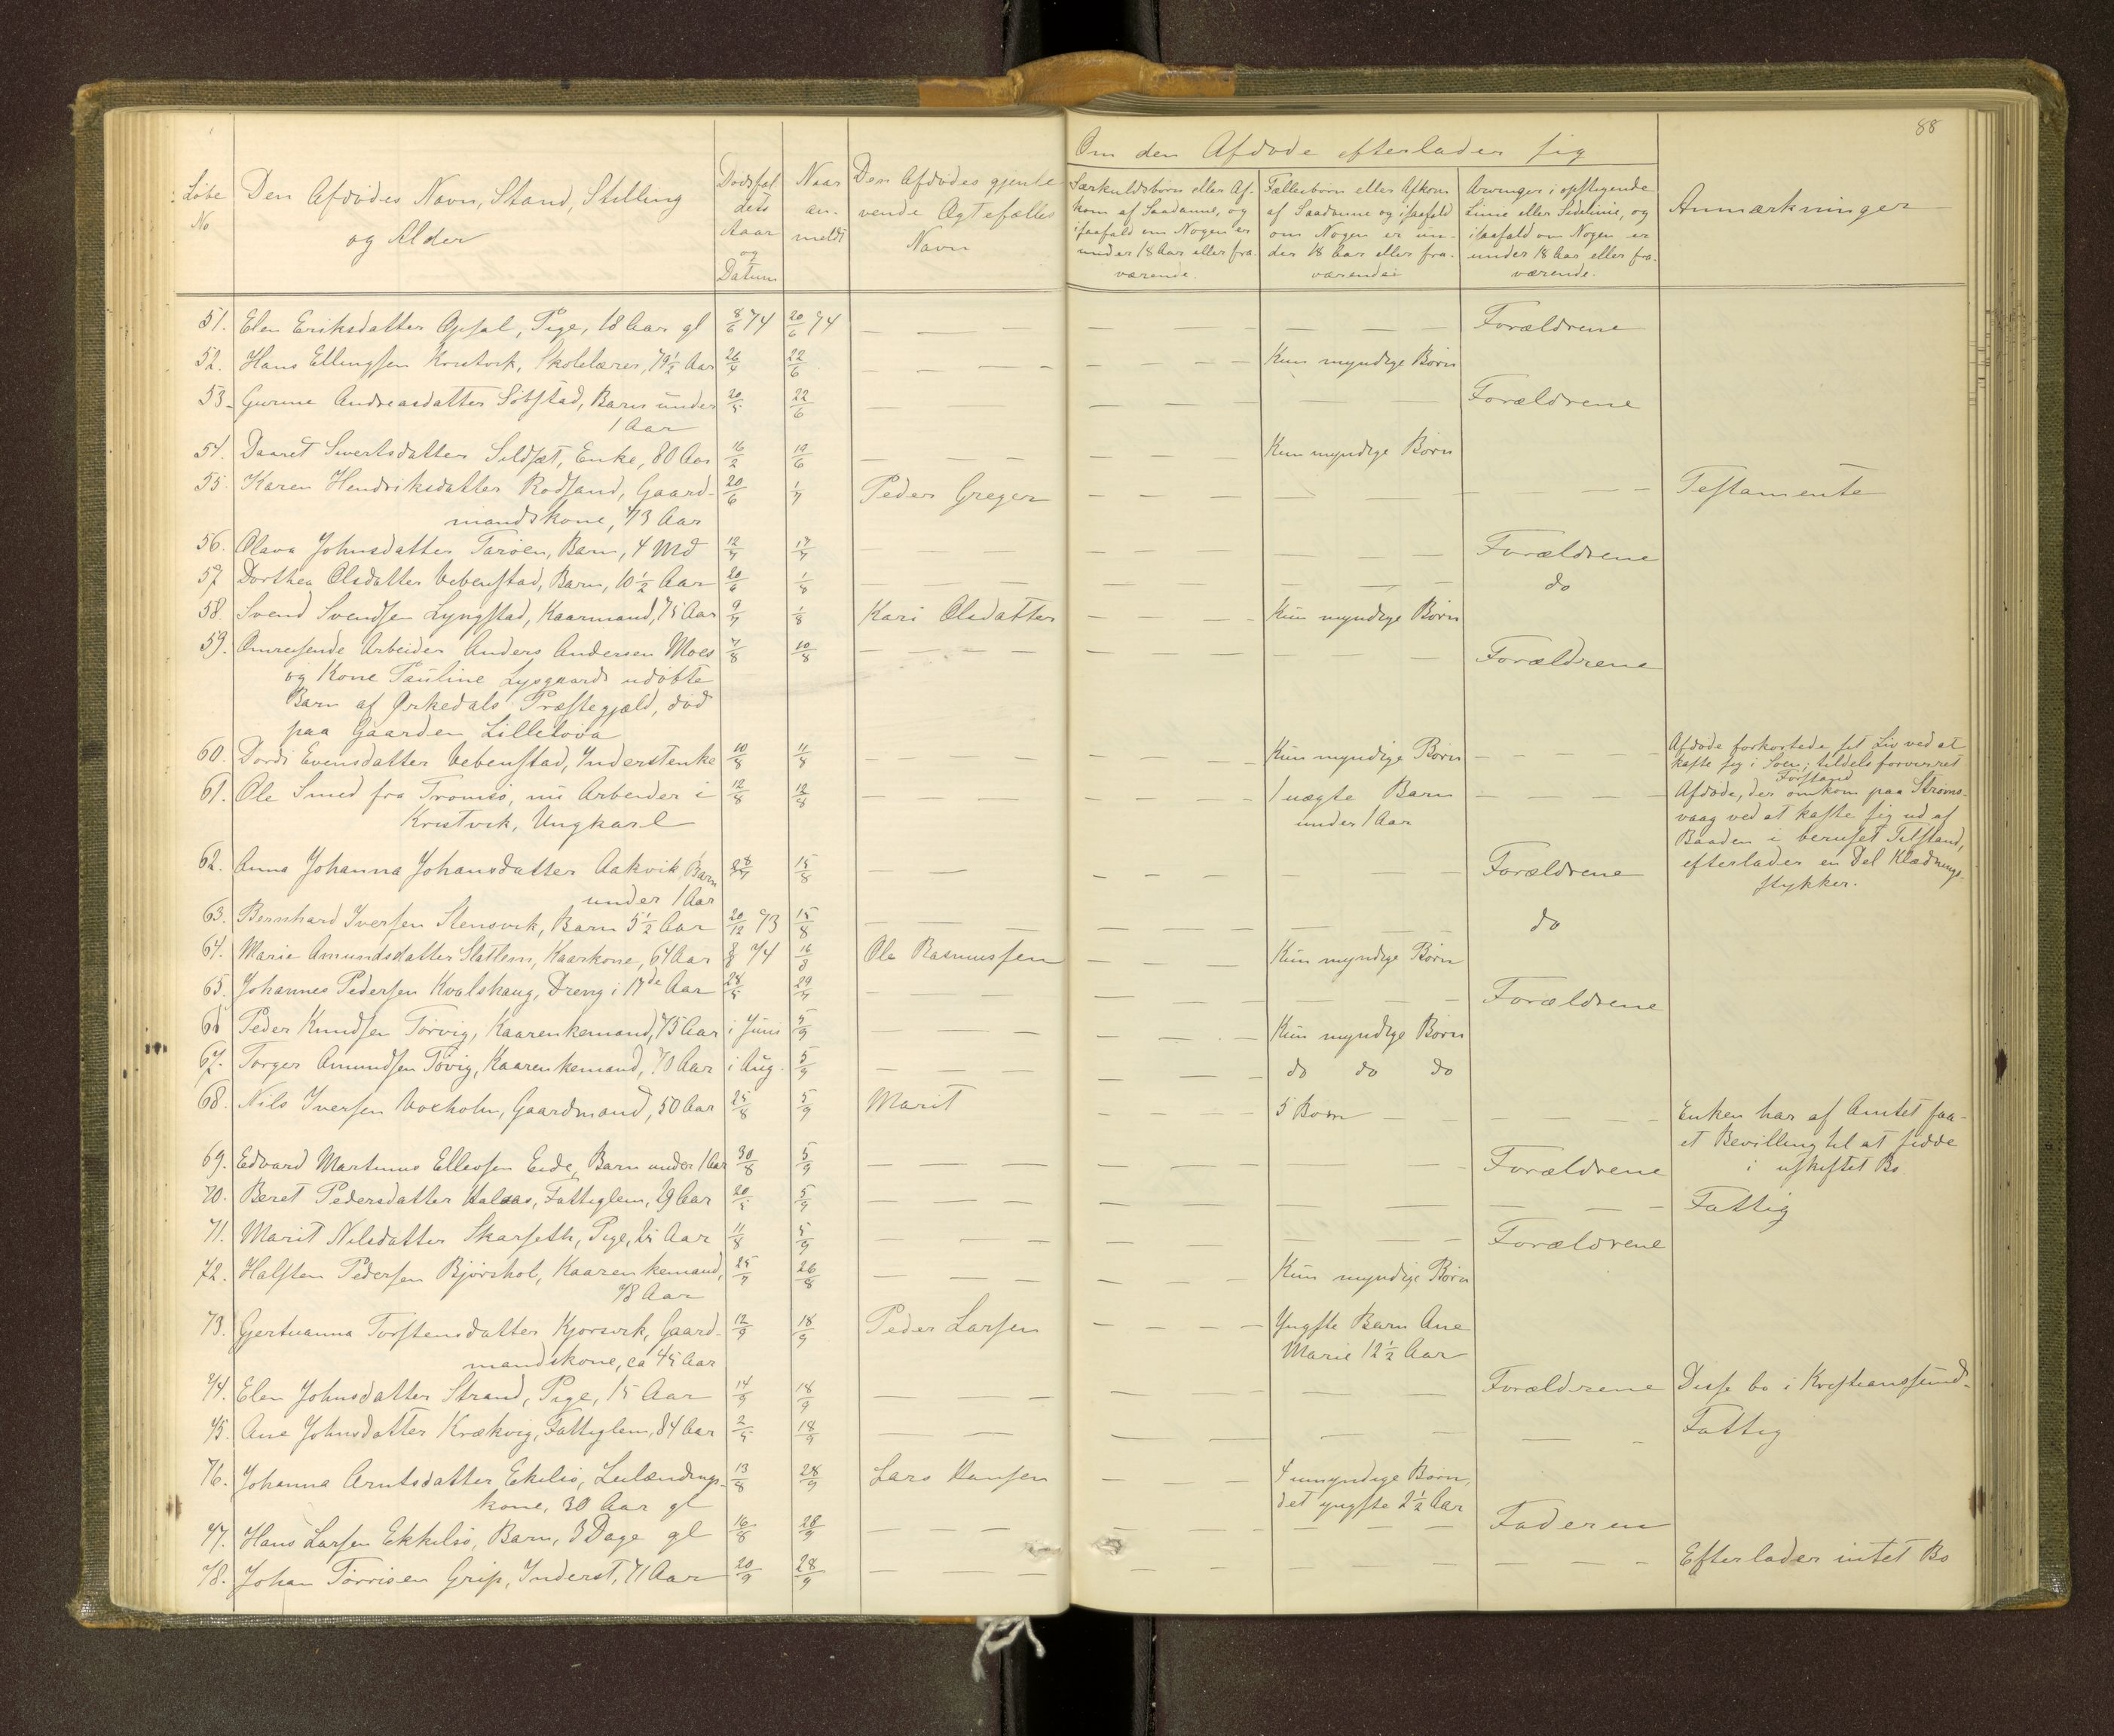 88
Om den Afdøde efterlader sig
Løbe No
Den Afdødes Navn, Stand, Stilling og Alder
Dødsfaldets Aaar og Datum
Naar anmeldt
Den Afdødes gjenlevende Ægtefælles Navn
Særkuldsbørn eller Afkom af Saadanne, og isaafald om Nogen er under 18 Aar eller fraværende.
Fællesbørn eller Afkom af Saadanne og isaafald om Nogen er under 18 Aar eller fraværende
Arvinger i opstigende Linie eller Sidelinie, og isaafald om Nogen er under 18 Aar eller fraværende.
Anmærkninger
51. Elen Eriksdatter Opsal, Pige, 18 Aar gl 8/6 74 20/6 74 — — — Forældrene
52. Hans Ellingsen Kristvik, Skolelærer, 79½ Aar 26/4 22/6 — — — Kun myndige Børn
53. Gurine Andreasdatter Sølstad, Barn under 20/5 22/6 — — — Forældrene
1 Aar
54. Daaret Sivertsdatter Sildset, Enke, 80 Aar 16/2 19/6 — — — Kun myndige Børn
55. Karen Hendriksdatter Rodsand, Gaard- 20/6 1/7 Peder Greger — — — Testamente
mandskone, 73 Aar
56. Olava Johnsdatter Tarøen, Barn, 4 Md 12/7 17/7 — — — Forældrene
57 Dorthea Olsdatter Vebenstad, Barn, 10½ Aar 20/6 1/8 — — — do
58. Svend Svendsen Lyngstad, Kaarmand, 75 Aar 9/7 1/8 Kari Olsdatter — — — Kun myndige Børn
59. Omreisende Arbeider Anders Andersen Moes 7/8 10/8 — — — Forældrene
og Kone Pauline Lysgaards udøbte
Barn af Ørkedals Præstegjæld, død
paa Gaarden Lilleløva
60. Dordi Evensdatter Vebenstad, Inderstenke 10/8 11/8 — — — Kun myndige Børn — — — Afdøde forkortede sit Liv ved at
kaste sig i Søen; tildels forvirret
Forstand
61. Ole Smed fra Tromsø, nu Arbeider i 12/8 12/8 — — — 1 uægte Barn — — — Afdøde, der omkom paa Strøms-
Kristvik, Ungkarl under 1 Aar vaag ved at kaste sig ud af
Baaden i beruset Tilstand,
efterlader en Del Klædnings-
stykker.
62. Anna Johanna Johansdatter Aakvik, Barn 28/7 15/8 — — — Forældrene
under 1 Aar
63. Bernhard Iversen Stensvik, Barn 5½ Aar 20/12 73 15/8 — — — do
64. Marie Amundsdatter Slatlem, Kaarkone, 64 Aar 8/8 74 16/8 Ole Rasmussen — — — Kun myndige Børn
65. Johannes Pedersen Kvalshaug, Dreng i 17de Aar 28/5 29/7 — — — Forældrene
66 Peder Knudsen Tørvig, Kaarenkemand, 75 Aar i Juni 5/9 — — — Kun myndige Børn
67. Torger Amundsen Tøvig, Kaarenkemand, 70 Aar i Aug. 5/9 — — — do do do
68. Nils Iversen Voxholm, Gaardmand, 50 Aar 25/8 5/9 Marit — — — 5 Børn — — — Enken har af Amtet faa-
et Bevilling til at sidde
i uskiftet Bo.
69. Edvard Martinus Ellevsen Eide, Barn under 1 Aar 30/8 5/9 — — — Forældrene
70. Beret Pedersdatter Fattiglem, 29 Aar 20/5 5/9 — — — Fattig
71. Marit Nilsdatter Skarseth, Pige, Aar 11/8 5/9 — — — Forældrene
72. Halsten Pedersen Bjørshol, Kaarenkemand, 25/7 26/8 — — — Kun myndige Børn
78 Aar
73. Gjertruanna Torstensdatter Kjorsvik, Gaard- 12/9 18/9 Peder Larsen — — — Yngste Barn Ane
mandskone, ca 45 Aar Marie 12½ Aar
74. Elen Johnsdatter Strand, Pige, 15 Aar 14/9 18/9 — — — Forældrene Disse bo i Kristianssund.
75. Ane Johnsdatter Krækvig, Fattiglem, 84 Aar 2/5 18/9 — — — Fattig
76. Johanna Arntsdatter Ekilsø, Leilændings- 13/8 28/9 Lars Hansen — — — 4 umyndige Børn,
kone, 30 Aar gl det yngste 2½ Aar
77. Hans Larsen Ekkilsø, Barn, 3 Dage gl 16/8 28/9 — — — Faderen
78. Johan Tørrisen Grip, Inderst, 71 Aar 20/9 28/9 — — — Efterlader intet Bo